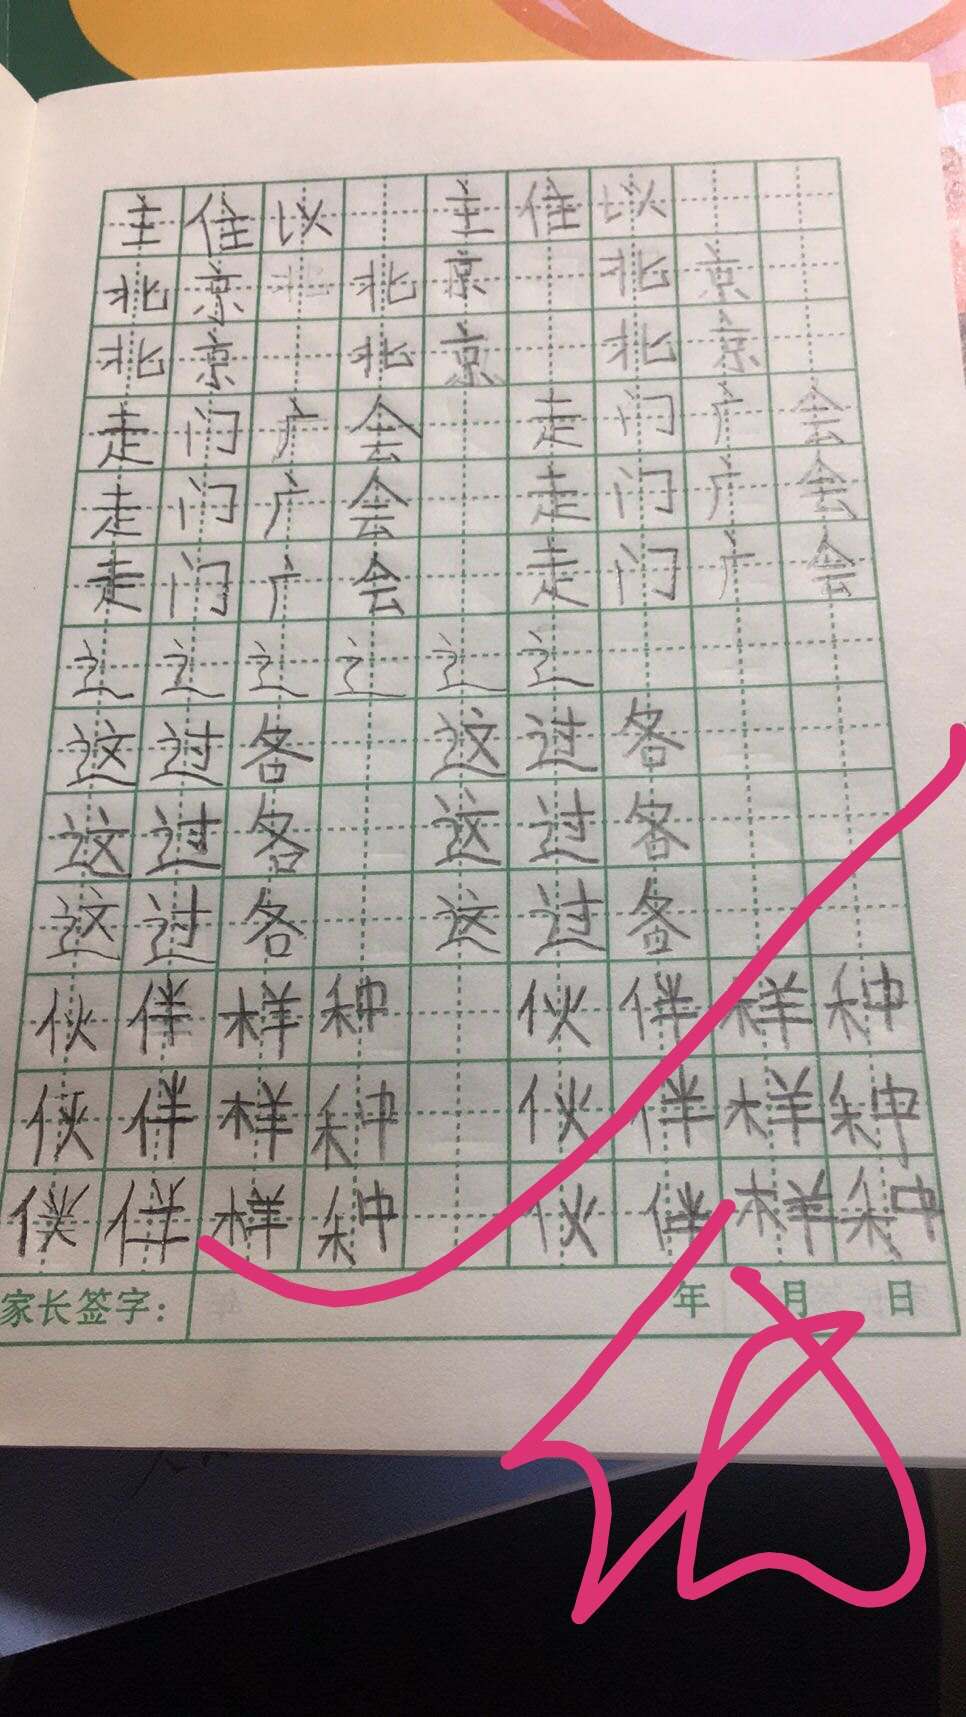 主住以主住以
北京北北京北京
北京北京北京
走门广会走门广会
走门广会走门广会
走门广会走门广会
辶辶辶辶辶辶
这过各这过各
这过各这过各
这过各这过各
伙伴样种伙伴样种
伙伴样种伙伴样种
伙伴样种伙伴样种
家长签字： 年 月 日